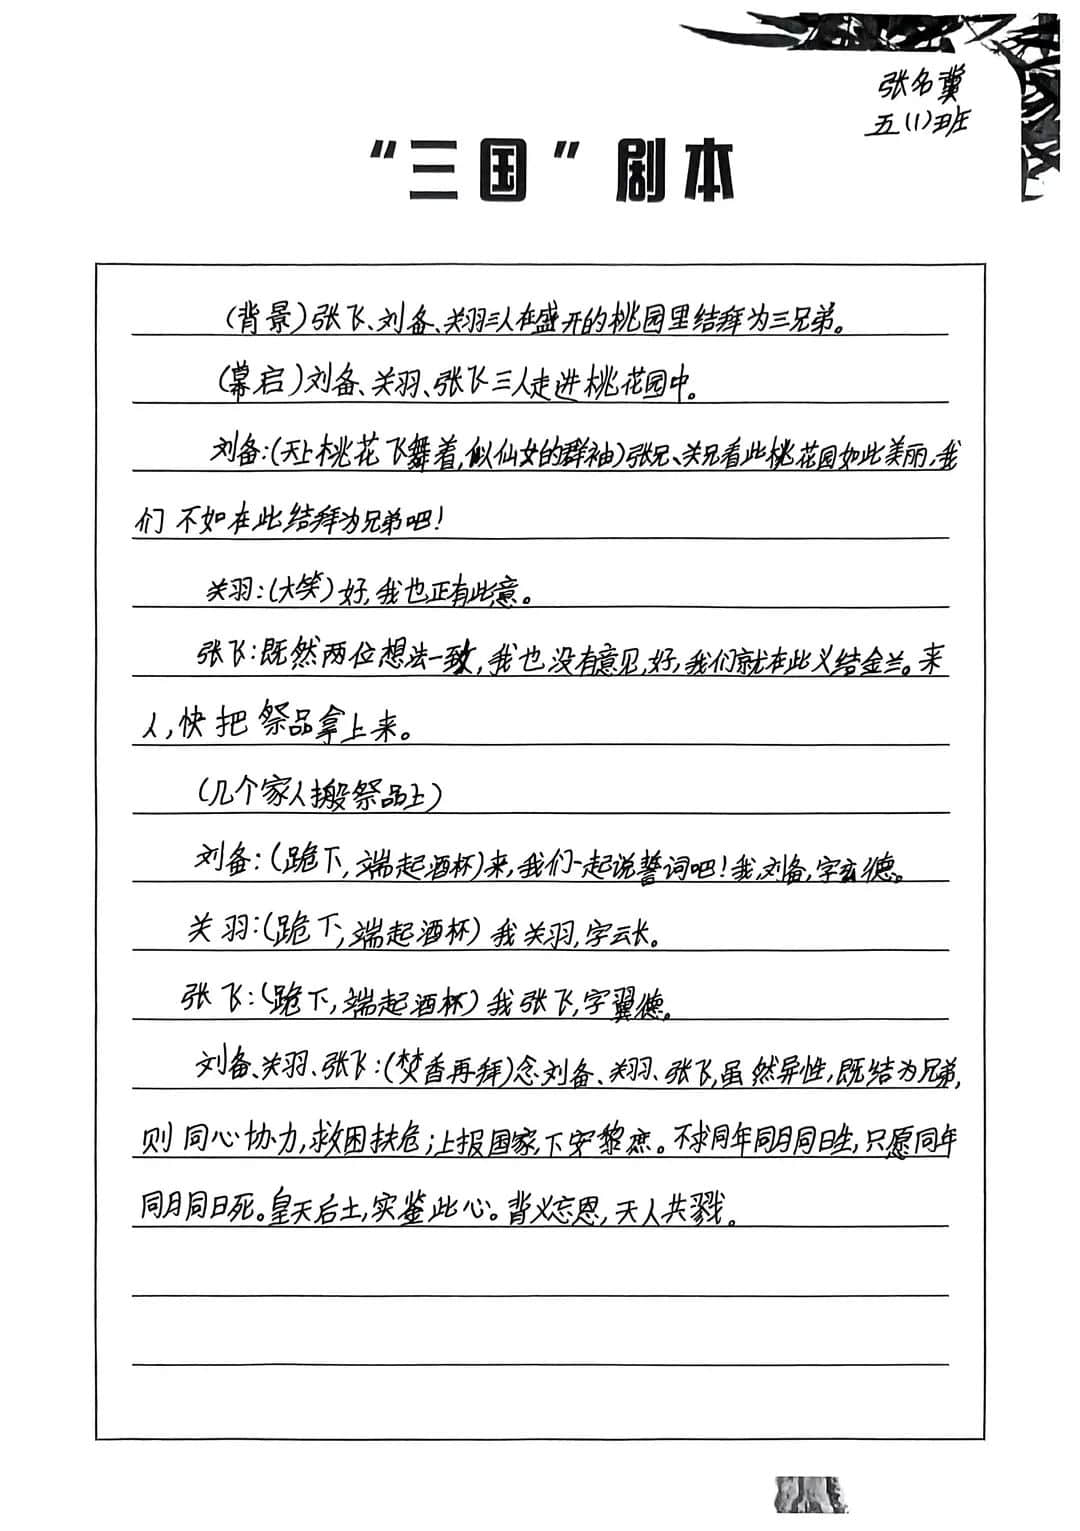 张名冀
五(1)班
“三国”剧本
(背景)张飞、刘备、关羽三人在盛开的桃园里结拜为三兄弟。
(幕启)刘备、关羽、张飞三人走进桃花园中。
刘备:(天上桃花飞舞着,似仙女的群袖)张兄、关兄看此桃花园如此美丽,我
们不如在此结拜为兄弟吧!
关羽:(大笑)好,我也正有此意。
张飞:既然两位想法一致,我也没有意见,好,我们就在此义结金兰。来
人,快把祭品拿上来。
(几个家人搬祭品上)
刘备:(跪下,端起酒杯)来,我们一起说誓词吧!我,刘备,字玄德。
关羽:(跪下,端起酒杯)我关羽,字云长。
张飞:(跪下,端起酒杯)我张飞,字翼德。
刘备、关羽、张飞:(焚香再拜)念刘备、关羽、张飞,虽然异性,既结为兄弟,
则同心协力,救困扶危;上报国家,下安黎庶。不求同年同月同日生,只愿同年
同月同日死。皇天后土,实鉴此心。背义忘恩,天人共戮。